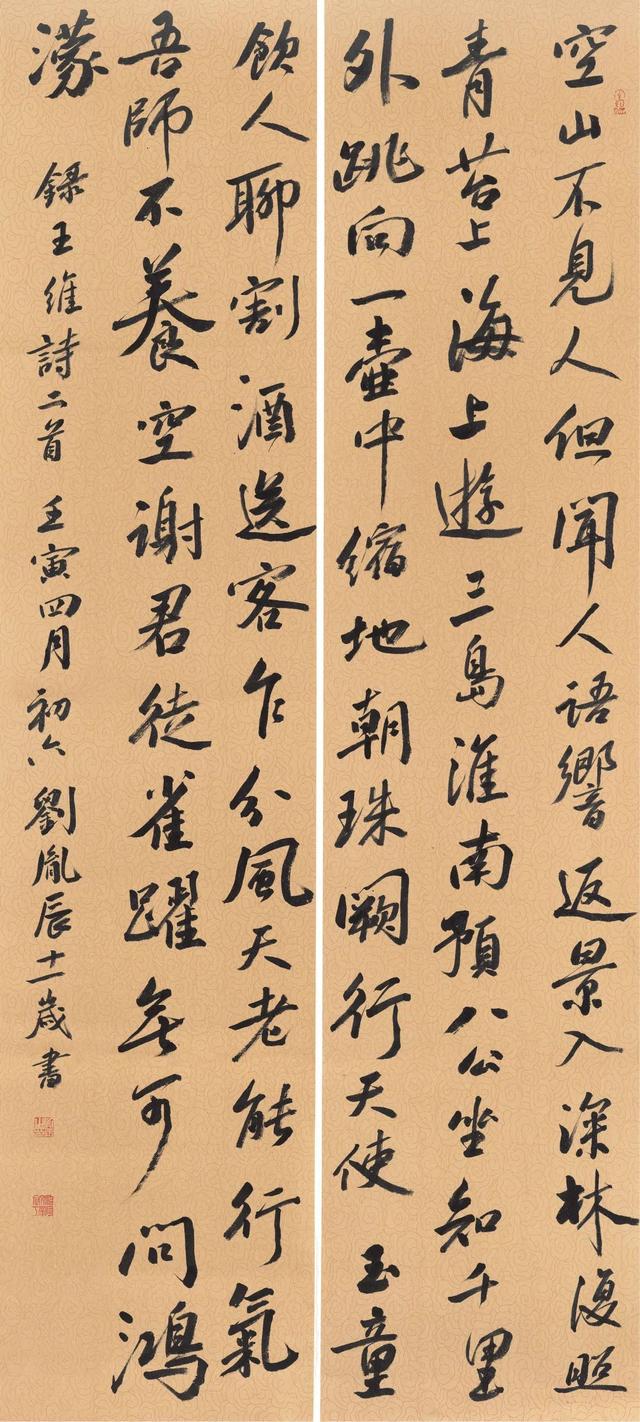 空山不見人但聞人語響返景入深林復照
青苔上海上遊三島淮南預八公坐知千里
外跳向一壺中縮地朝珠闕行天使玉童
飲人聊割酒送客乍分風天老能行氣
吾師不養空謝君徒雀躍無可問鴻
濛
錄王維詩二首 壬寅四月初六劉胤辰十一歲書